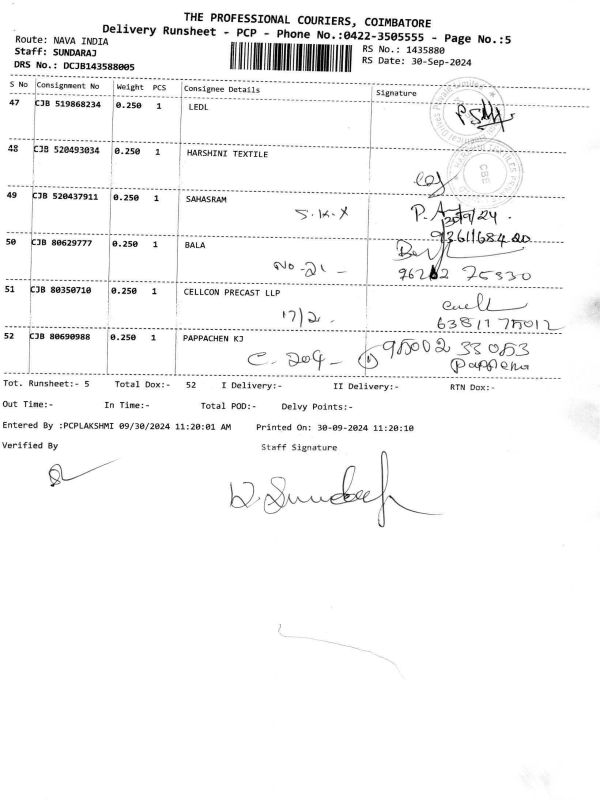 THE PROFESSIONAL COURIERS, COIMBATORE
Delivery Runsheet - PCP - Phone No.:0422-3505555 - Page No.:5
Route: NAVA INDIA
RS No.: 1435880
Staff: SUNDARAJ
RS Date: 30-Sep-2024
DRS No.: DCJB143588005
S No Consignment No Weight PCS Consignee Details Signature
47 CJB 519868234 0.250 1 LEDL
48 CJB 520493034 0.250 1 HARSHINI TEXTILE
CBE
49 CJB 520437911 0.250 1 SAHASRAM
S.K.X
9361168420
50 CJB 80629777 0.250 1 BALA
NO-21 - 96262 75830
51 CJB 80350710 0.250 1 CELLCON PRECAST LLP
17/2. 63811 75012
52 CJB 80690988 0.250 1 PAPPACHEN KJ
C. 204 - 95002 33053
Tot. Runsheet:- 5 Total Dox:- 52 I Delivery:- II Delivery:- RTN Dox:-
Out Time:- In Time:- Total POD:- Delvy Points:-
Entered By :PCPLAKSHMI 09/30/2024 11:20:01 AM Printed On: 30-09-2024 11:20:10
Verified By Staff Signature